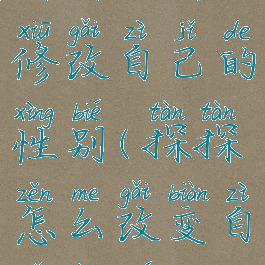 xiū gǎi zì jǐ de
修改自己的
xìng bié tàn tàn
性别(探探
zěn me gǎi biàn zì
怎么改变自